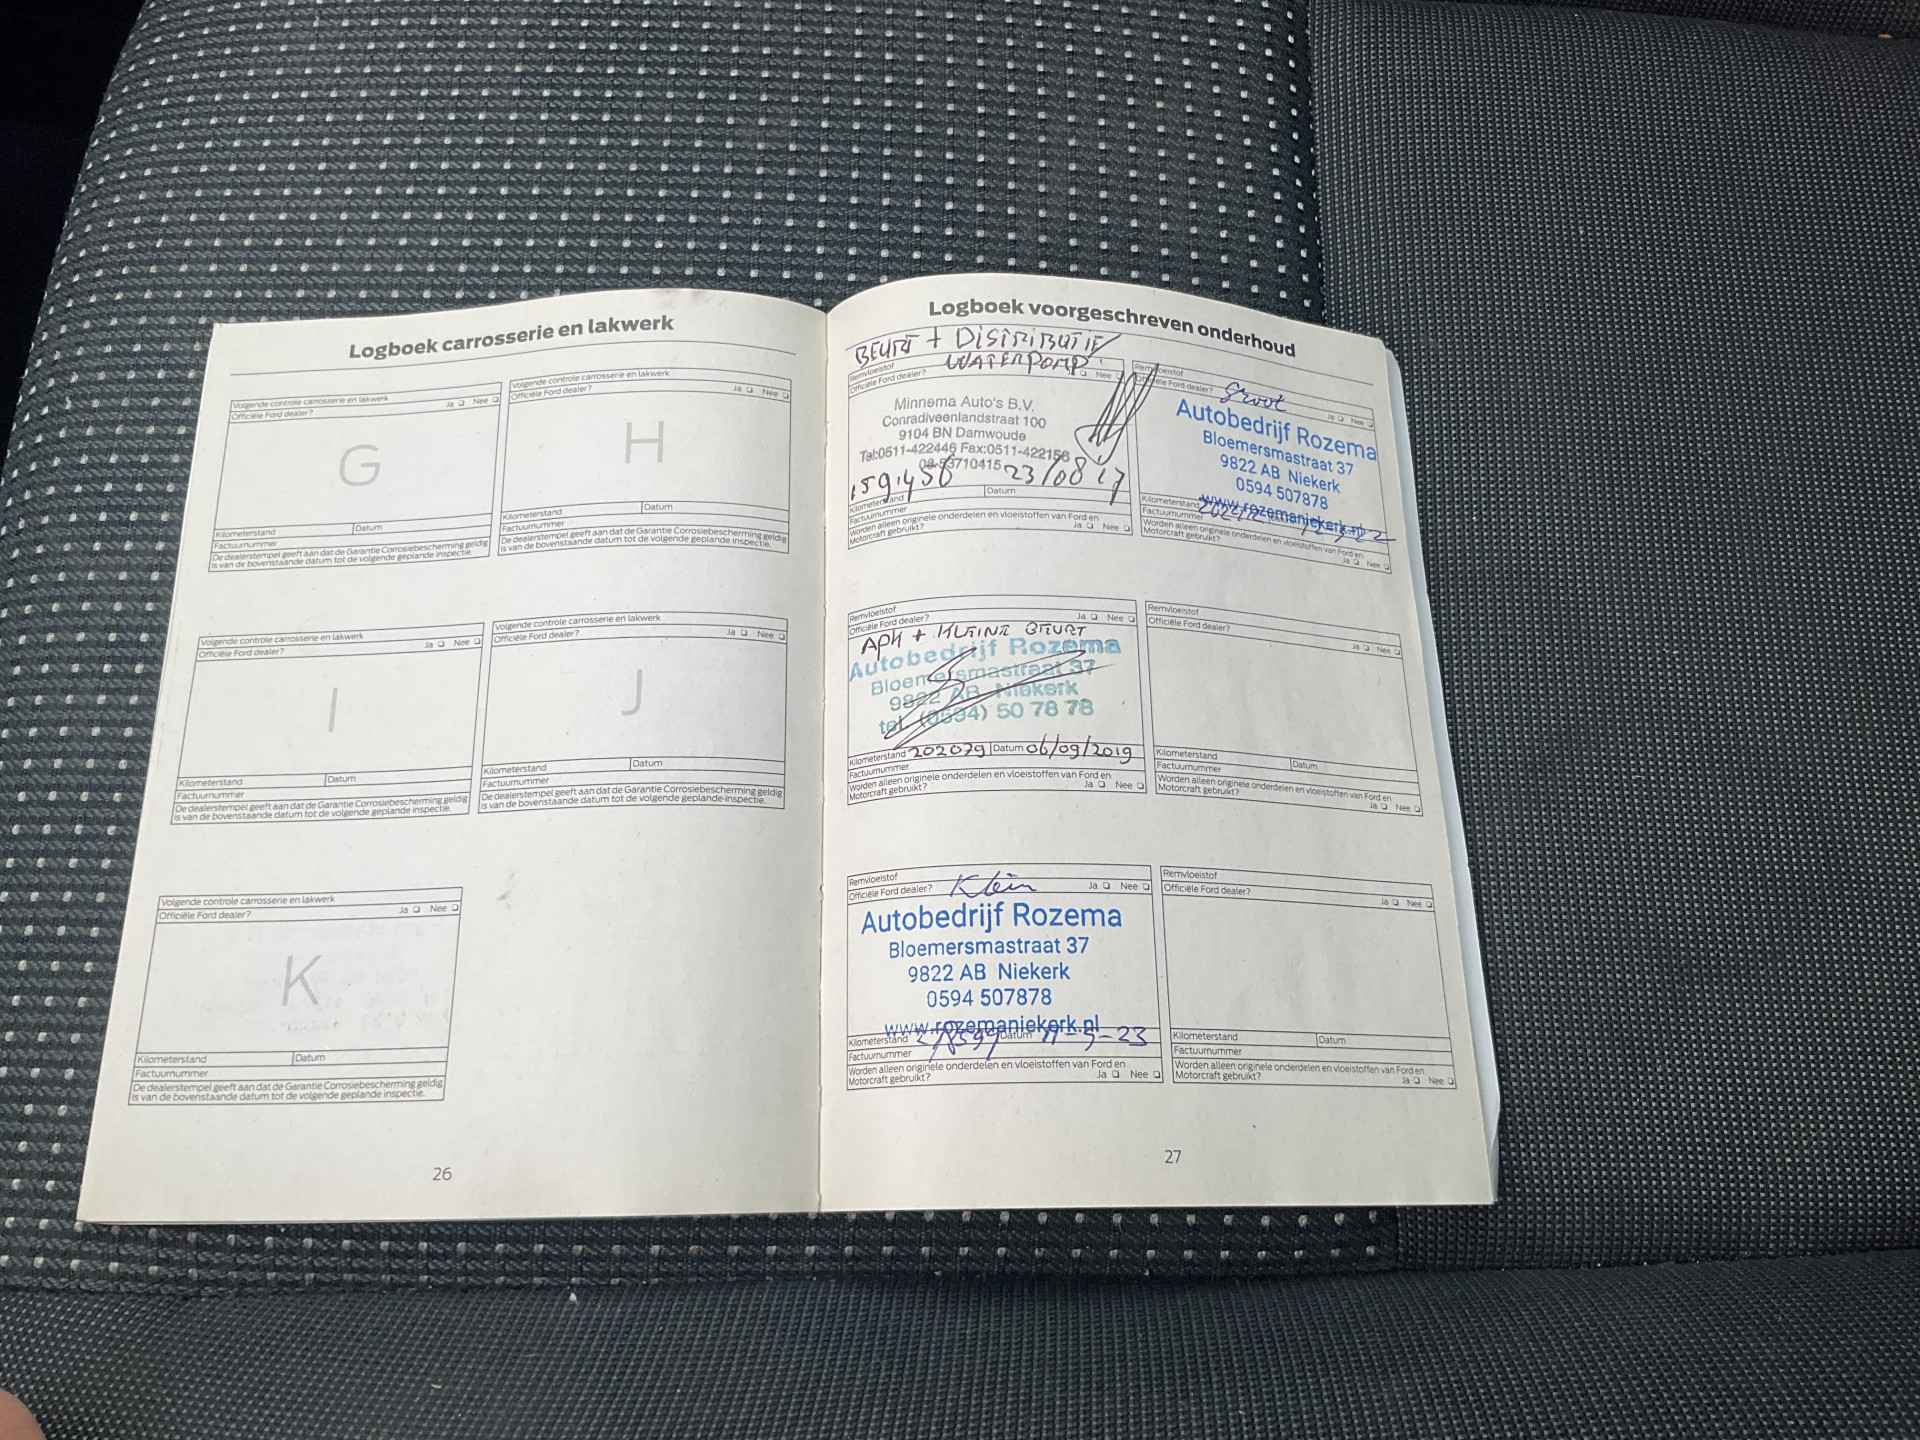 Logboek carrosserie en lakwerk
Volgende controle carrosserie en lakwerk
Officiële Ford dealer? Ja Nee
G
Kilometerstand Datum
Factuurnummer
De dealerstempel geeft aan dat de Garantie Corrosiebescherming geldig
is van de bovenstaande datum tot de volgende geplande inspectie.
Volgende controle carrosserie en lakwerk
Officiële Ford dealer? Ja Nee
H
Kilometerstand Datum
Factuurnummer
De dealerstempel geeft aan dat de Garantie Corrosiebescherming geldig
is van de bovenstaande datum tot de volgende geplande inspectie.
Volgende controle carrosserie en lakwerk
Officiële Ford dealer? Ja Nee
I
Kilometerstand Datum
Factuurnummer
De dealerstempel geeft aan dat de Garantie Corrosiebescherming geldig
is van de bovenstaande datum tot de volgende geplande inspectie.
Volgende controle carrosserie en lakwerk
Officiële Ford dealer? Ja Nee
J
Kilometerstand Datum
Factuurnummer
De dealerstempel geeft aan dat de Garantie Corrosiebescherming geldig
is van de bovenstaande datum tot de volgende geplande inspectie.
Volgende controle carrosserie en lakwerk
Officiële Ford dealer? Ja Nee
K
Kilometerstand Datum
Factuurnummer
De dealerstempel geeft aan dat de Garantie Corrosiebescherming geldig
is van de bovenstaande datum tot de volgende geplande inspectie.
26
Logboek voorgeschreven onderhoud
BEURT + DISTRIBUTIE
WATERPOMP
Remvloeistof
Officiële Ford dealer? Nee
Minnema Auto's B.V.
Conradiveenlandstraat 100
9104 BN Damwoude
Tel:0511-422446 Fax:0511-422156
08-53710415
159.456 23/08 17
Kilometerstand Datum
Factuurnummer
Worden alleen originele onderdelen en vloeistoffen van Ford en
Motorcraft gebruikt? Ja Nee
Remvloeistof
Officiële Ford dealer? Groot Ja Nee
Autobedrijf Rozema
Bloemersmastraat 37
9822 AB Niekerk
0594 507878
www.rozemaniekerk.nl
Kilometerstand
Factuurnummer
Worden alleen originele onderdelen en vloeistoffen van Ford en
Motorcraft gebruikt? Ja Nee
Remvloeistof
Officiële Ford dealer? Ja Nee
APK + KLEINE BEURT
Autobedrijf Rozema
Bloemersmastraat 37
9822 AB Niekerk
tel. (0594) 50 78 78
Kilometerstand 202079 Datum 06/09/2019
Factuurnummer
Worden alleen originele onderdelen en vloeistoffen van Ford en
Motorcraft gebruikt? Ja Nee
Remvloeistof
Officiële Ford dealer?
Ja Nee
Kilometerstand Datum
Factuurnummer
Worden alleen originele onderdelen en vloeistoffen van Ford en
Motorcraft gebruikt? Ja Nee
Remvloeistof
Officiële Ford dealer? Klein Ja Nee
Autobedrijf Rozema
Bloemersmastraat 37
9822 AB Niekerk
0594 507878
www.rozemaniekerk.nl
Kilometerstand Datum
Factuurnummer
Worden alleen originele onderdelen en vloeistoffen van Ford en
Motorcraft gebruikt? Ja Nee
Remvloeistof
Officiële Ford dealer?
Ja Nee
Kilometerstand Datum
Factuurnummer
Worden alleen originele onderdelen en vloeistoffen van Ford en
Motorcraft gebruikt? Ja Nee
27